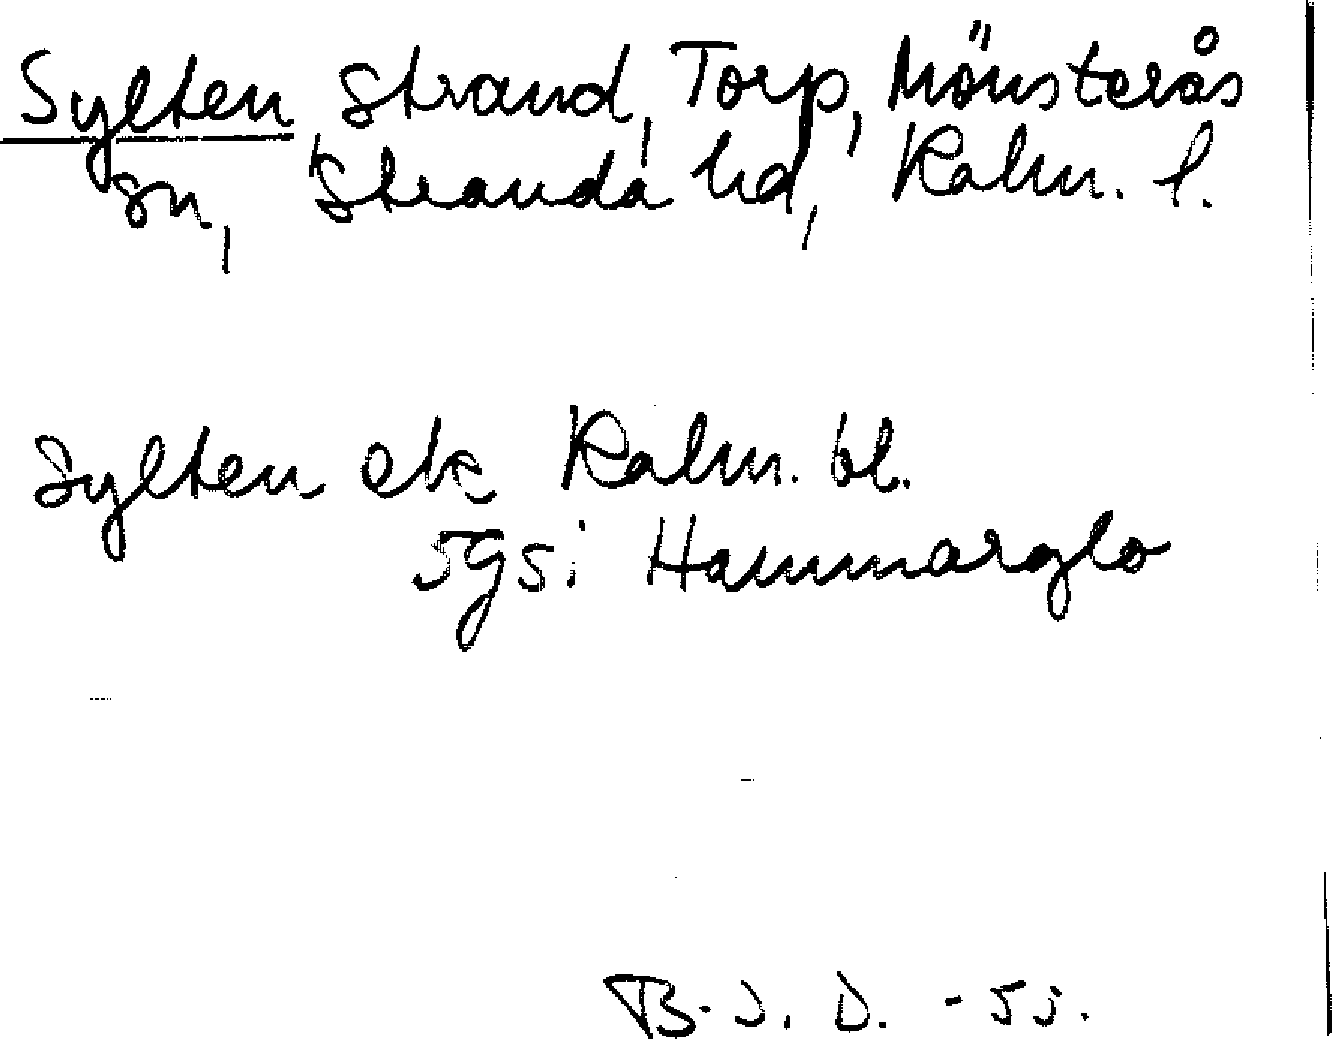 Sylten Strand, Torp, Mönsterås
sn, Stranda hd, Kalm. l.
Sylten ek Kalm. bl.
5gsi Hammarglo
B.J.D. - 55.